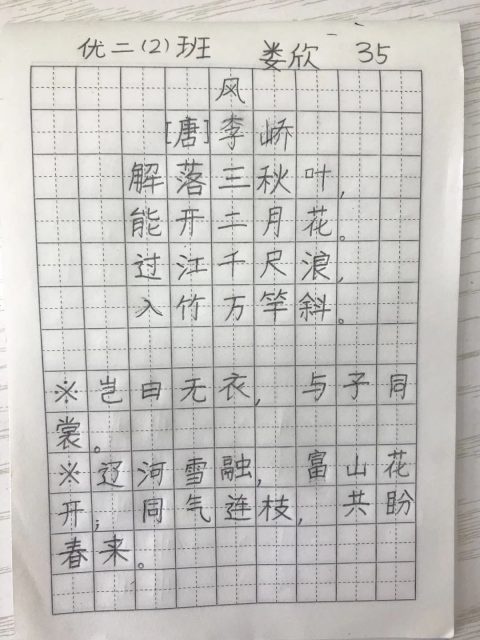 优二(2)班 娄欣 35
风
[唐]李峤
解落三秋叶,
能开二月花。
过江千尺浪,
入竹万竿斜。
※岂曰无衣,与子同
裳。
※辽河雪融,富山花
开;同气连枝,共盼
春来。